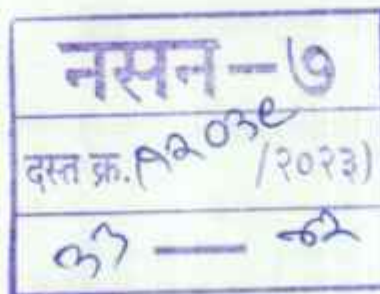 नसन-७
दस्त क्र. १२०३९ /२०२३)
३३ — ४२